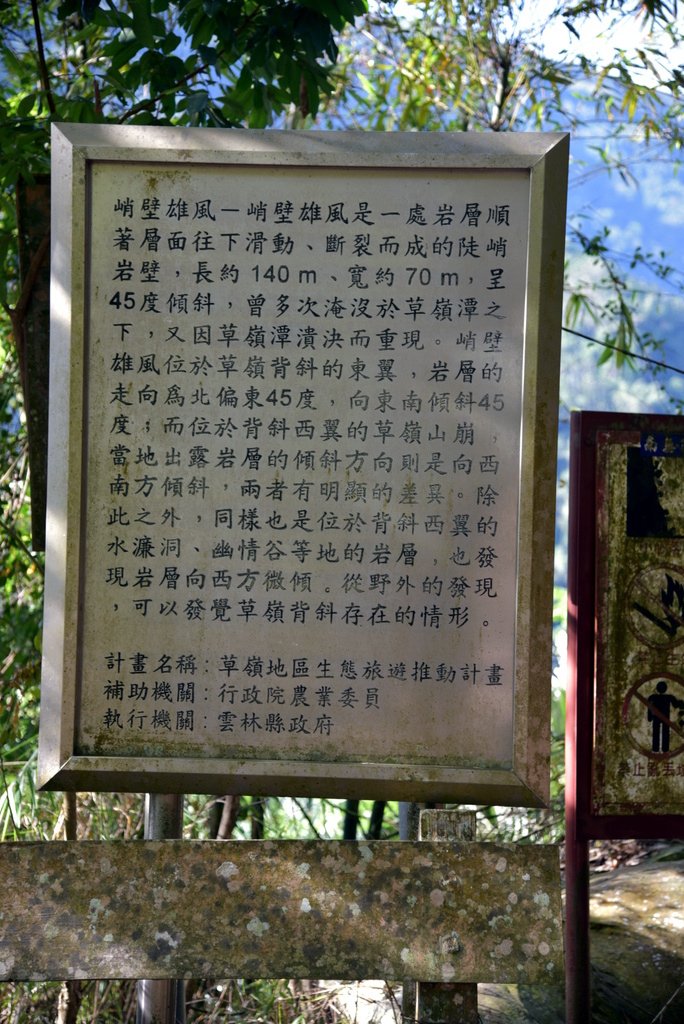 峭壁雄風－峭壁雄風是一處岩層順
著層面往下滑動、斷裂而成的陡峭
岩壁，長約140 m、寬約70 m，呈
45度傾斜，曾多次淹沒於草嶺潭之
下，又因草嶺潭潰決而重現。峭壁
雄風位於草嶺背斜的東翼，岩層的
走向為北偏東45度，向東南傾斜45
度；而位於背斜西翼的草嶺山崩，
當地出露岩層的傾斜方向則是向西
南方傾斜，兩者有明顯的差異。除
此之外，同樣也是位於背斜西翼的
水濂洞、幽情谷等地的岩層，也發
現岩層向西方微傾。從野外的發現
，可以發覺草嶺背斜存在的情形。
計畫名稱：草嶺地區生態旅遊推動計畫
補助機關：行政院農業委員
執行機關：雲林縣政府